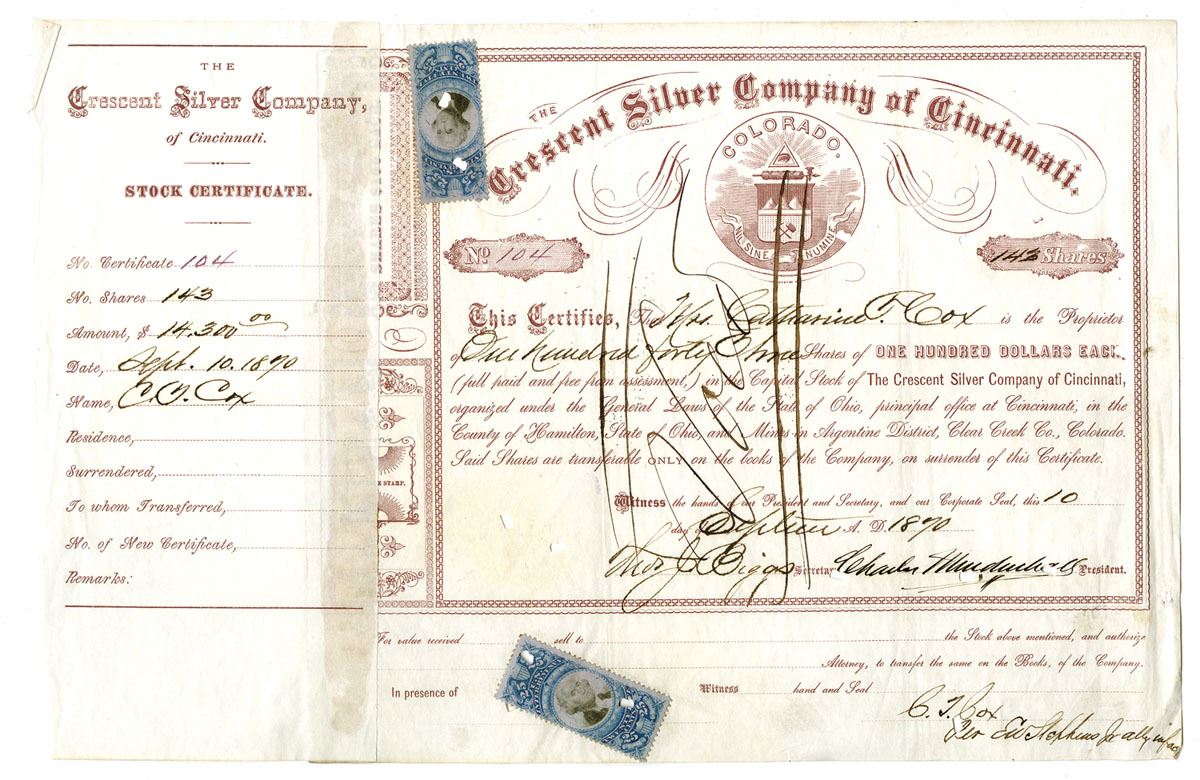 THE
Crescent Silver Company,
of Cincinnati.
STOCK CERTIFICATE.
No. Certificate 104
No. Shares 143
Amount, $ 14.300 00
Date, Sept. 10. 1870
Name, C. T. Cox
Residence,
Surrendered,
To whom Transferred,
No. of New Certificate,
Remarks:
THE
Crescent Silver Company of Cincinnati.
COLORADO.
NIL SINE NUMINE
No 104
143 Shares
This Certifies, That Mrs. Catharine T. Cox is the Proprietor
of One hundred forty three Shares of ONE HUNDRED DOLLARS EACH.
(full paid and free from assessment,) in the Capital Stock of The Crescent Silver Company of Cincinnati,
organized under the General Laws of the State of Ohio, principal office at Cincinnati, in the
County of Hamilton, State of Ohio, and Mines in Argentine District, Clear Creek Co., Colorado.
Said Shares are transferable ONLY on the books of the Company, on surrender of this Certificate.
Witness the hands of our President and Secretary, and our Corporate Seal, this 10
day of A. D. 1870
Biggs Secretary Charles President.
E STAMP.
For value received sell to the Stock above mentioned, and authorize
Attorney, to transfer the same on the Books, of the Company.
In presence of Witness hand and Seal
C. T. Cox
Per Ed Stephens Jr atty in fact
25
25